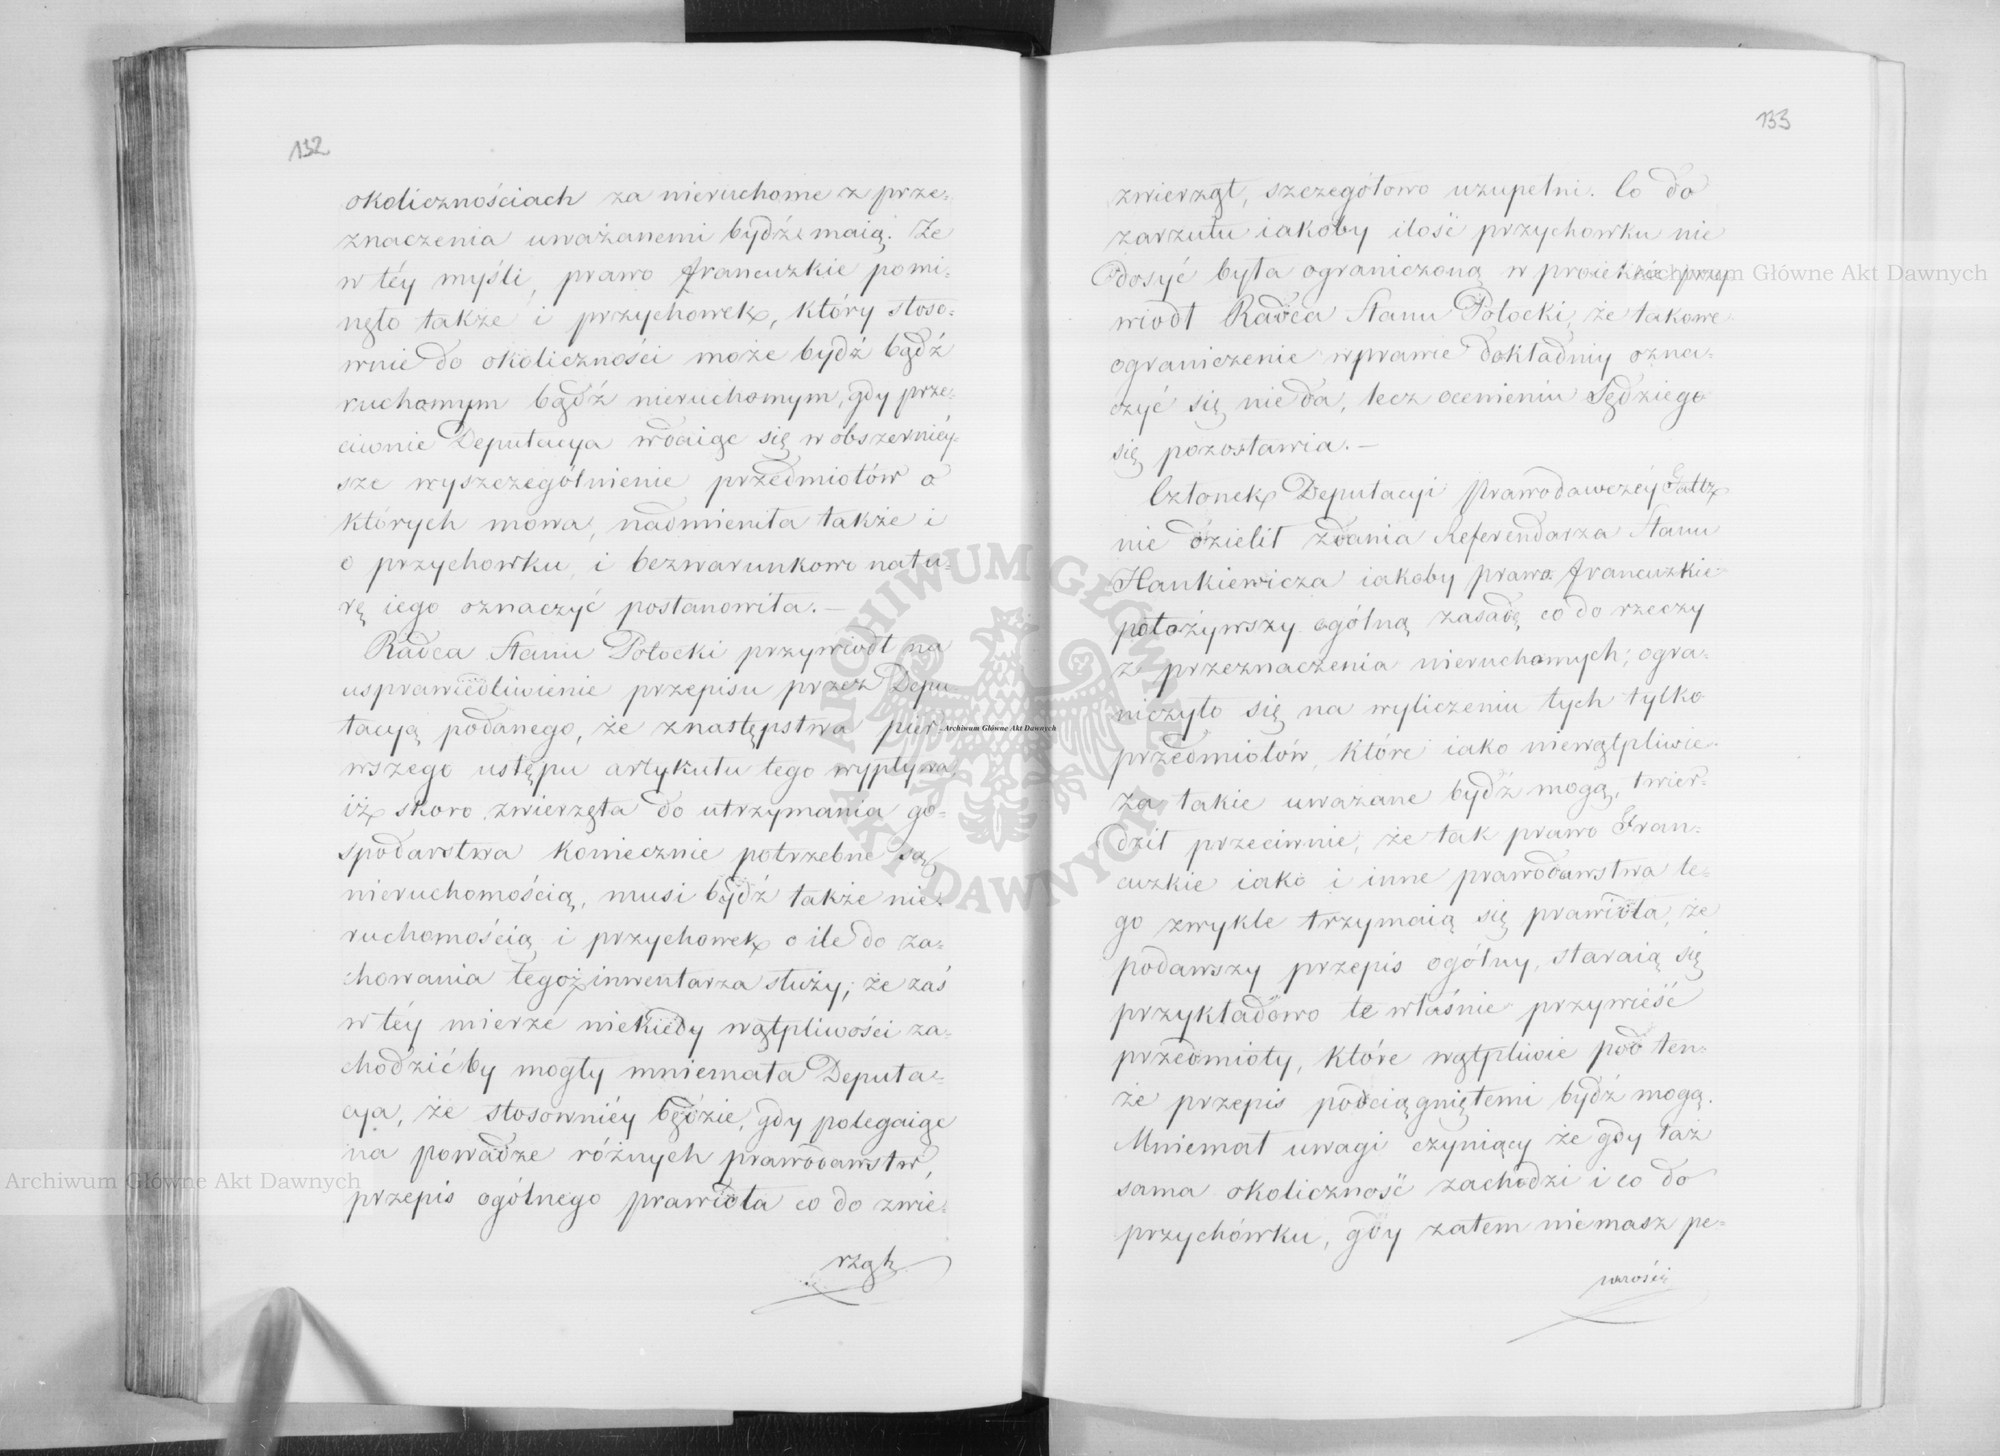 132
okolicznościach za nieruchome z prze-
znaczenia uważanemi bydź maią. Że
w téy myśli, prawo francuzkie pomi-
nęło także i przychowek, który stoso-
wnie do okoliczności może bydź bądź
ruchomym bądź nieruchomym, gdy prze-
ciwnie Deputacya wdaiąc się w obszerniéy-
sze wyszczególnienie przedmiotów o
których mowa, nadmieniła także i
o przychowku, i bezwarunkowo natu-
rę iego oznaczyć postanowiła.—
Radca Stanu Potocki przywiódł na
usprawiedliwienie przepisu przez Depu-
tacyą podanego, że z następstwa pier-
wszego ustępu artykułu tego wypływa,
iż skoro zwierzęta do utrzymania go-
spodarstwa koniecznie potrzebne są
nieruchomością, musi bydź także nie-
ruchomością i przychowek o ile do za-
chowania tegoż inwentarza służy; że zaś
w téy mierze niekiedy wątpliwości za-
chodzić by mogły mniemała Deputa-
cya, że stosowniéy będzie, gdy polegaiąc
na powadze różnych prawodawstw,
przepis ogólnego prawidła co do zwie-
rząt
133
zwierząt, szczegółowo uzupełni. Co do
zarzutu iakoby ilość przychowku nie
dosyć była ograniczoną w proiekcie przy
wiódł Radca Stanu Potocki, że takowe
ograniczenie w prawie dokładniy ozna-
czyć się nie da, lecz ocenieniu Sędziego
się pozostawia.—
Członek Deputacyi prawodawczéy
nie dzielił zdania Referendarza Stanu
Hankiewicza iakoby prawo francuzkie
położywszy ogólną zasadę co do rzeczy
z przeznaczenia nieruchomych; ogra-
niczyło się na wyliczeniu tych tylko
przedmiotów, które iako niewątpliwie
za takie uważane bydź mogą, twier-
dził przeciwnie, że tak prawo Fran-
cuzkie iako i inne prawodawstwa te-
go zwykle trzymaią się prawidła, że
podawszy przepis ogólny, staraią się
przykładowo te właśnie przywieść
przedmioty, które wątpliwie pod ten-
że przepis podciągniętemi bydź mogą.
Mniemał uwagi czyniący że gdy taż
sama okoliczność zachodzi i co do
przychówku, gdy zatem niemasz pe-
wności
Archiwum Główne Akt Dawnych
Archiwum Główne Akt Dawnych
Archiwum Główne Akt Dawnych
ARCHIWUM GŁÓWNE AKT DAWNYCH